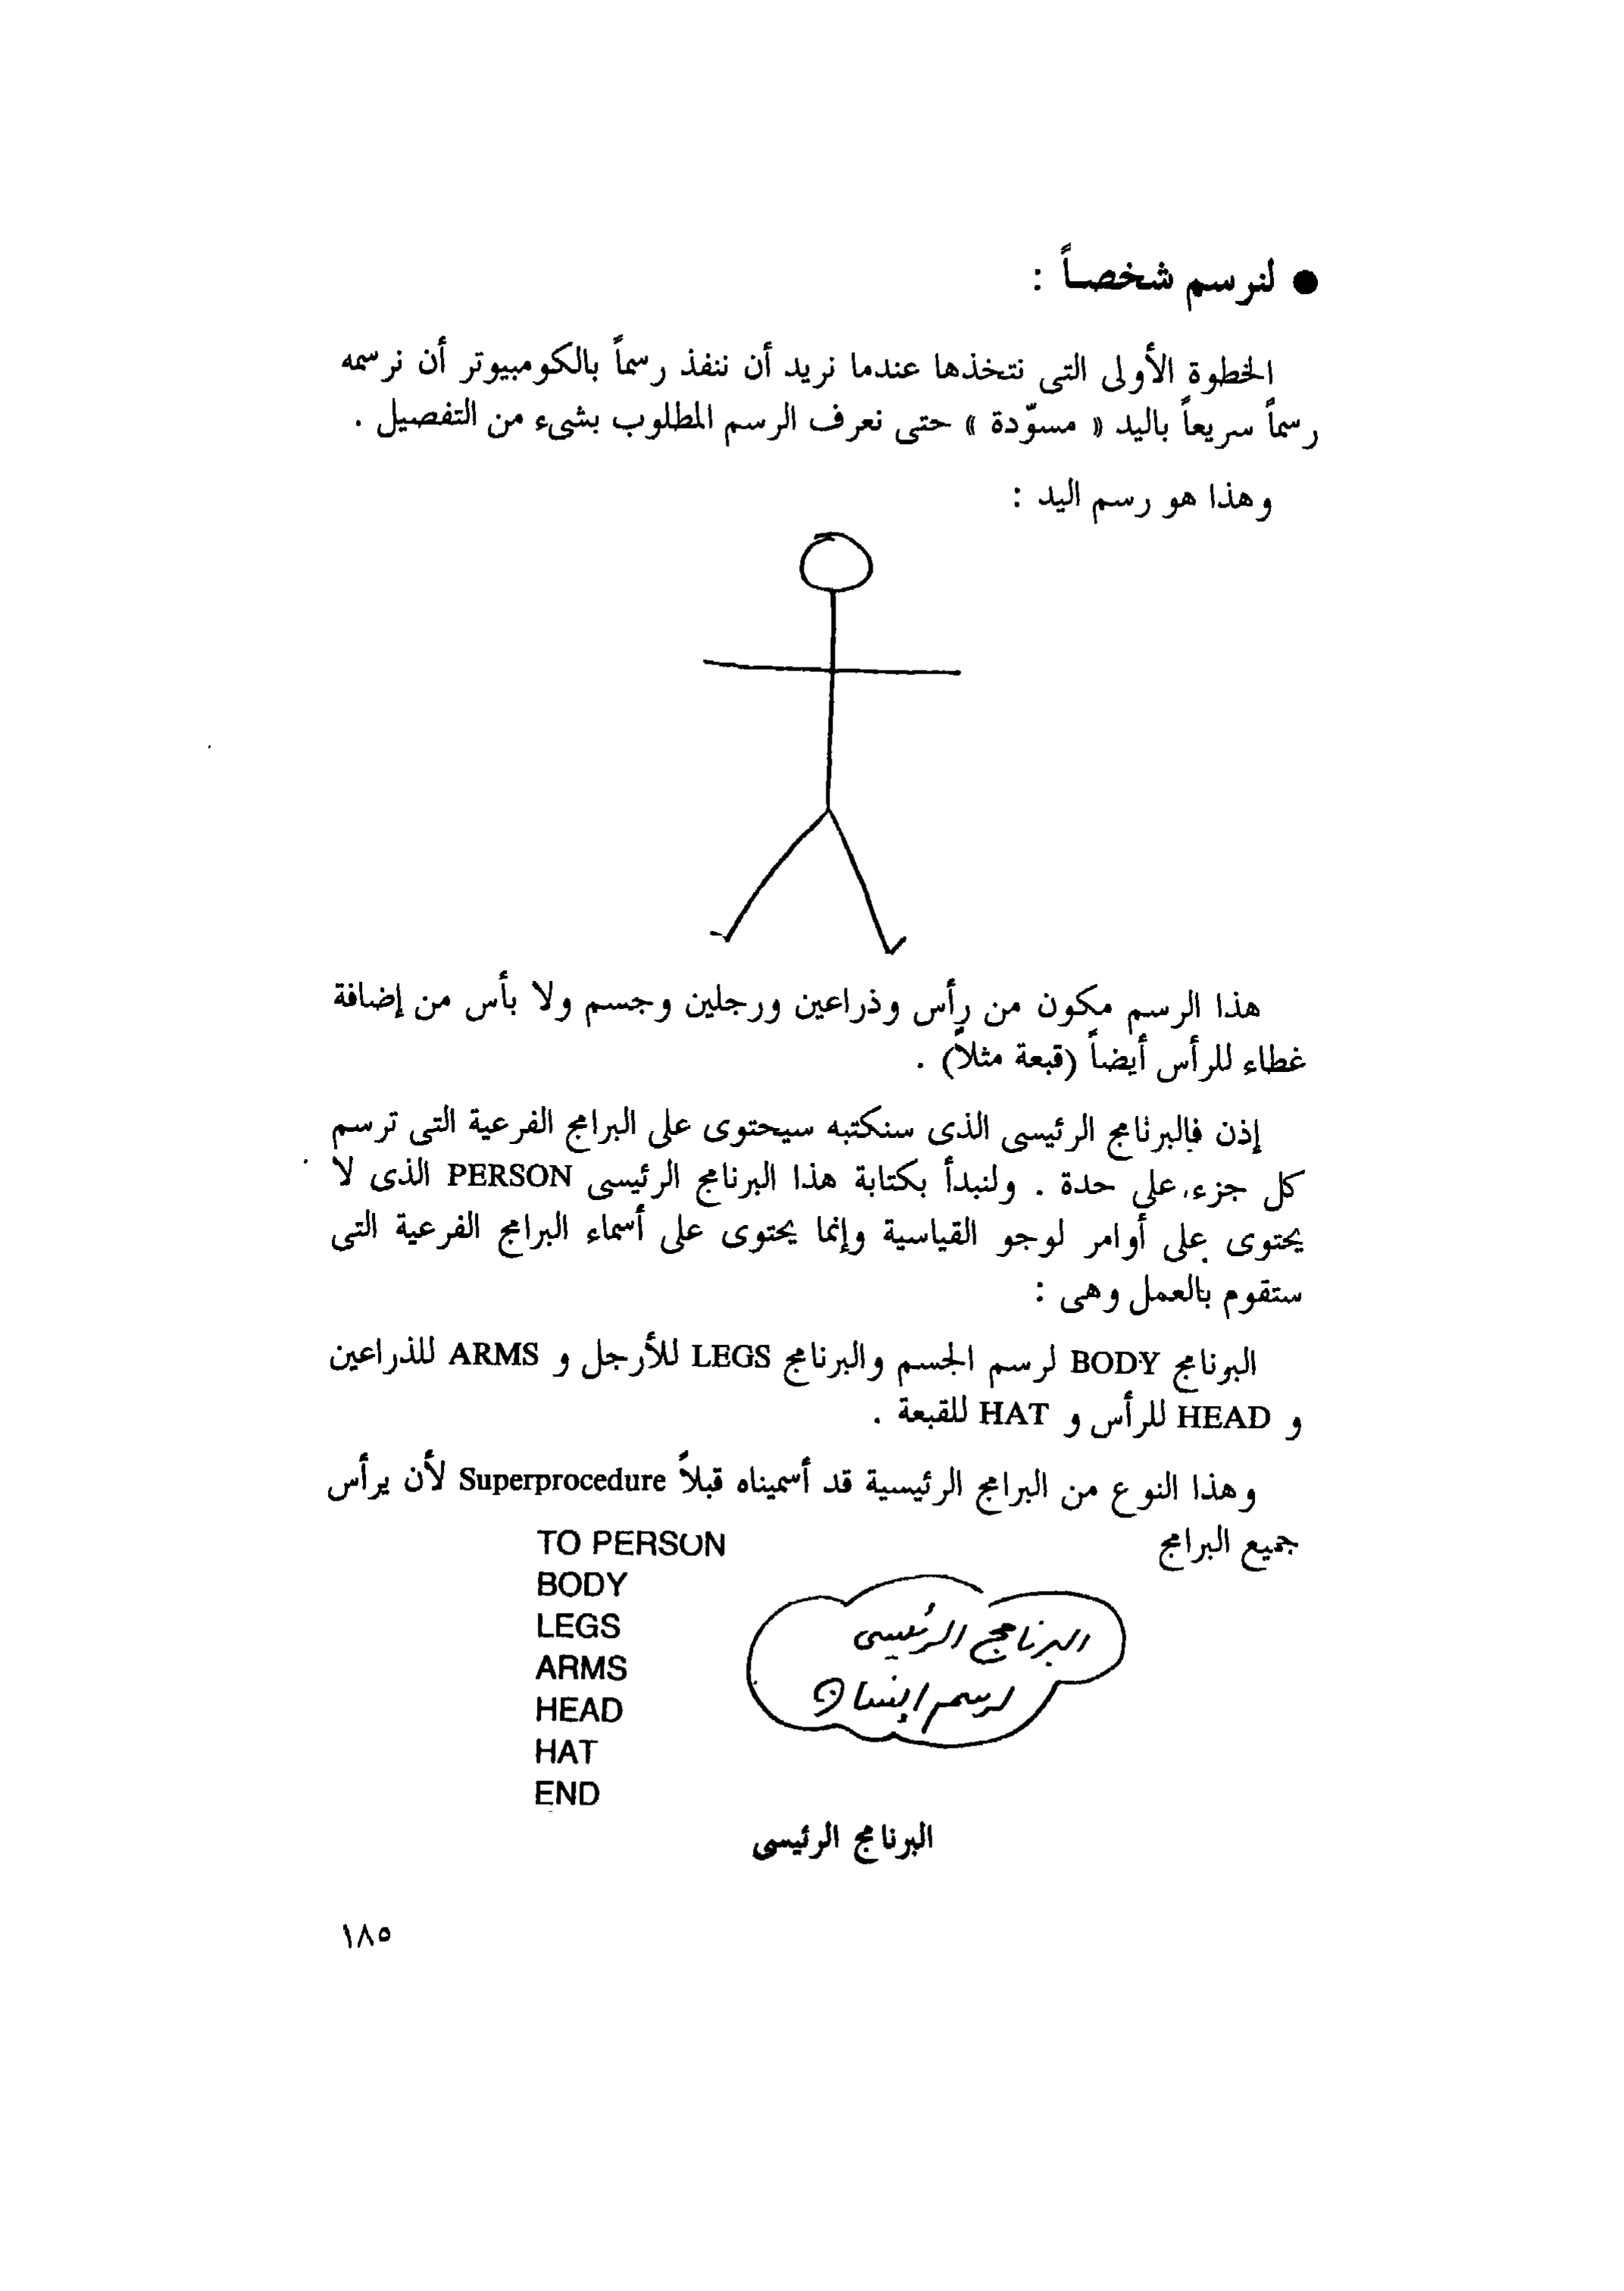 ● لنرسم شخصاً :
الخطوة الأولى التى نتخذها عندما نريد أن ننفذ رسماً بالكومبيوتر أن نرسمه
رسماً سريعاً باليد « مسوّدة » حتى نعرف الرسم المطلوب بشىء من التفصيل .
وهذا هو رسم اليد :
هذا الرسم مكون من رأس وذراعين ورجلين وجسم ولا بأس من إضافة
غطاء للرأس أيضاً (قبعة مثلاً) .
إذن فالبرنامج الرئيسى الذى سنكتبه سيحتوى على البرامج الفرعية التى ترسم
كل جزء على حدة . ولنبدأ بكتابة هذا البرنامج الرئيسى PERSON الذى لا
يحتوى على أوامر لوجو القياسية وإنما يحتوى على أسماء البرامج الفرعية التى
ستقوم بالعمل وهى :
البرنامج BODY لرسم الجسم والبرنامج LEGS للأرجل و ARMS للذراعين
و HEAD للرأس و HAT للقبعة .
وهذا النوع من البرامج الرئيسية قد أسميناه قبلاً Superprocedure لأن يرأس
جميع البرامج
TO PERSON
BODY
LEGS
ARMS
HEAD
HAT
END
البرنامج الرئيسى
لرسم إنسان
البرنامج الرئيسى
١٨٥